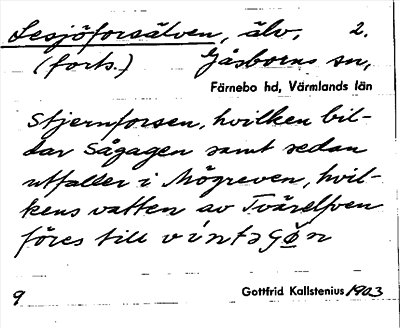 Lesjöforsälven, älv, 2.
(forts.) Gåsborns sn,
Färnebo hd, Värmlands län
Stjernforsen, hvilken bil-
dar Sågagen samt sedan
utfaller i Mögreven, hvil-
kens vatten av Tvärelfven
föres till
9 Gottfrid Kallstenius 1903